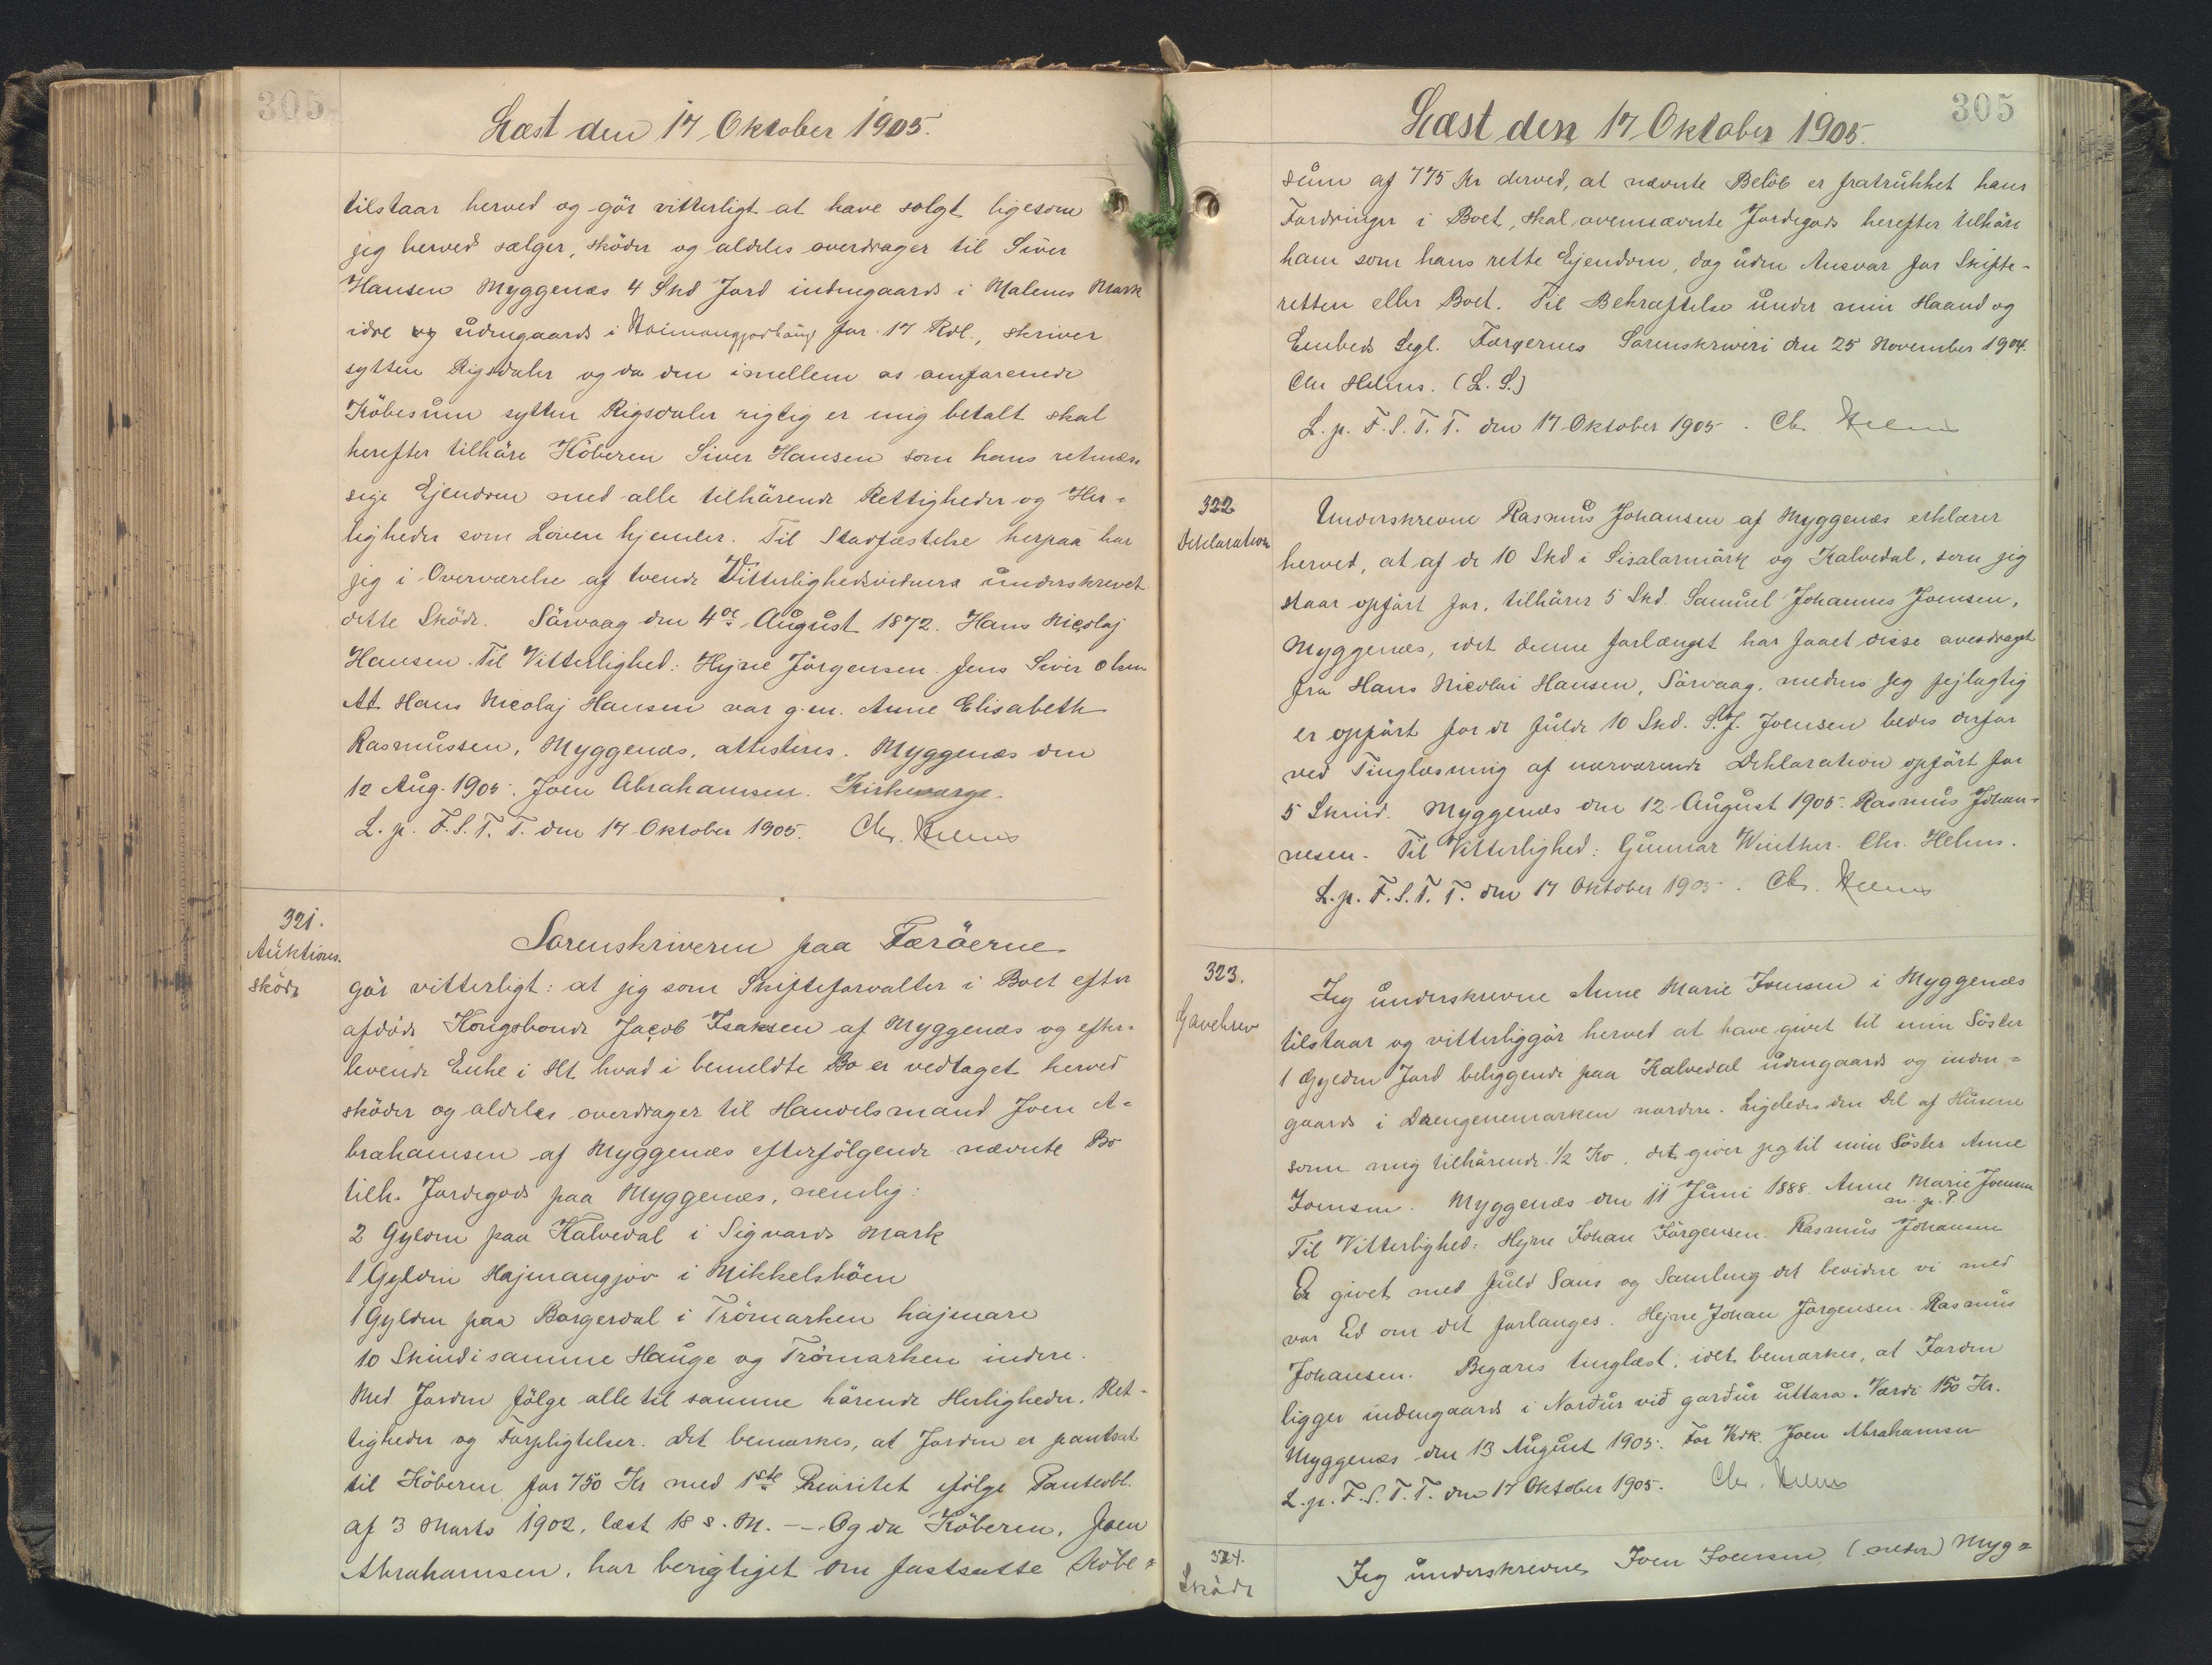 305
Læst den 17 Oktober 1905.
tilstaar herved og gör vitterligt at have solgt ligesom
jeg herved sælger, sköder og aldeles overdrager til Siver
Hansen Myggenæs 4 Skd Jord indengaards i Malenes Mark
idre og udengaards i for 17 Rdl., skriver
sytten Rigsdaler og da den imellem os omforenede
Köbesum sytten Rigsdaler rigtig er mig betalt skal
herefter tilhöre Köberen Siver Hansen som hans retmæs
sige Ejendom med alle tilhörende Rettigheder og Her=
ligheder som Loven hjemler. Til Stadfæstelse herpaa har
jeg i Overværelse af tvende Vitterlighedsvidner underskrevet
dette Sköde. Sörvaag den 4de August 1872. Hans Nicolaj
Hansen. Til Vitterlighed: Hejne Jörgensen. Jens Siver Olsen
At Hans Nicolaj Hansen var g. m. Anne Elisabeth
Rasmussen, Myggenæs, attesteres. Myggenæs den
12 Aug. 1905. Joen Abrahamsen. Kirkeværge.
L. p. F. S. T. T. den 17 Oktober 1905. Chr. Helms
321.
Auktions.
sköde
Sorenskriveren paa Færöerne
gör vitterligt: at jeg som Skifteforvalter i Boet efter
afdöde Kongsbonde Jacob Isaksen af Myggenæs og efter=
levende Enke i Ht hvad i bemeldte Bo er vedtaget herved
sköder og aldeles overdrager til Handelsmand Joen A=
brahamsen af Myggenæs efterfölgende nævnte Bo
tilh. Jordegods paa Myggenæs, nemlig:
2 Gylden paa Kalvedal i Sigvards Mark
1 Gylden Hajmangjov i Mikkelshöen
1 Gylden paa Borgerdal i Trömarken hajmare
10 Skind i samme Hauge og Trömarken indere.
Med Jorden fölge alle til samme hörende Herligheder, Ret-
tigheder og Forpligtelser. Det bemærkes, at Jorden er pantsat
til Köberen for 750 Kr med 1ste Prioritet ifölge Panteobl.
af 3 Marts 1902, læst 18 s. M. -- Og da Köberen, Joen
Abrahamsen, har berigtiget den fastsatte Köbe=
305
Læst den 17 Oktober 1905.
sum af 775 Kr derved, at nævnte Belöb er fratrukket hans
Fordringer i Boet, skal ovennævnte Jordegods herefter tilhöre
ham som hans rette Ejendom, dog uden Ansvar for Skifte-
retten eller Boet. Til Bekræftelse under min Haand og
Embeds Segl. Færöernes Sorenskriveri den 25 November 1904.
Chr Helms. (L. S.)
L. p. F. S. T. T. den 17 Oktober 1905. Chr Helms
322
Deklaration
Underskrevne Rasmus Johansen af Myggenæs erklærer
herved, at af de 10 Skd i Sisalarmörk og Kalvedal, som jeg
staar opfört for, tilhörer 5 Skd. Samuel Johannes Joensen,
Myggenæs, idet denne forlængst har faaet disse overdraget
fra Hans Nicolai Hansen, Sörvaag, medens jeg fejlagtig
er opfört for de fulde 10 Skd. S. J. Joensen bedes derfor
ved Tinglæsning af nærværende Deklaration opfört for
5 Skind. Myggenæs den 12 August 1905. Rasmus Johan-
nesen. Til Vitterlighed: Gunnar Winther. Chr. Helms.
L. p. F. S. T. T. den 17 Oktober 1905. Chr. Helms
323.
Gavebrev
Jeg underskrevne Anne Marie Joensen i Myggenæs
tilstaar og vitterliggör herved at have givet til min Söster
1 Gylden Jord beliggende paa Kalvedal udengaards og inden=
gaards i Drengenemarken nordere. Ligeledes den Del af Husene
som mig tilhörende. 1/2 Ko. det giver jeg til min Söster Anne
Joensen. Myggenæs den 11 Juni 1888. Anne Marie Joensen
m. p. P.
Til Vitterlighed: Hejne Johan Jörgensen. Rasmus Johansen
Er givet med fuld Sans og Samling det bevidne vi med
vor Ed om det forlanges. Hejne Johan Jörgensen. Rasmus
Johansen. Begæres tinglæst, idet bemærkes, at Jorden
ligger indengaards i Norður við garður uttara. Værdi 150 Kr.
Myggenæs den 13 August 1905. For Kdk. Joen Abrahamsen
L. p. F. S. T. T. den 17 Oktober 1905. Chr. Helms
324.
Sköde
Jeg underskrevne Joen Joensen (neder) Myg=